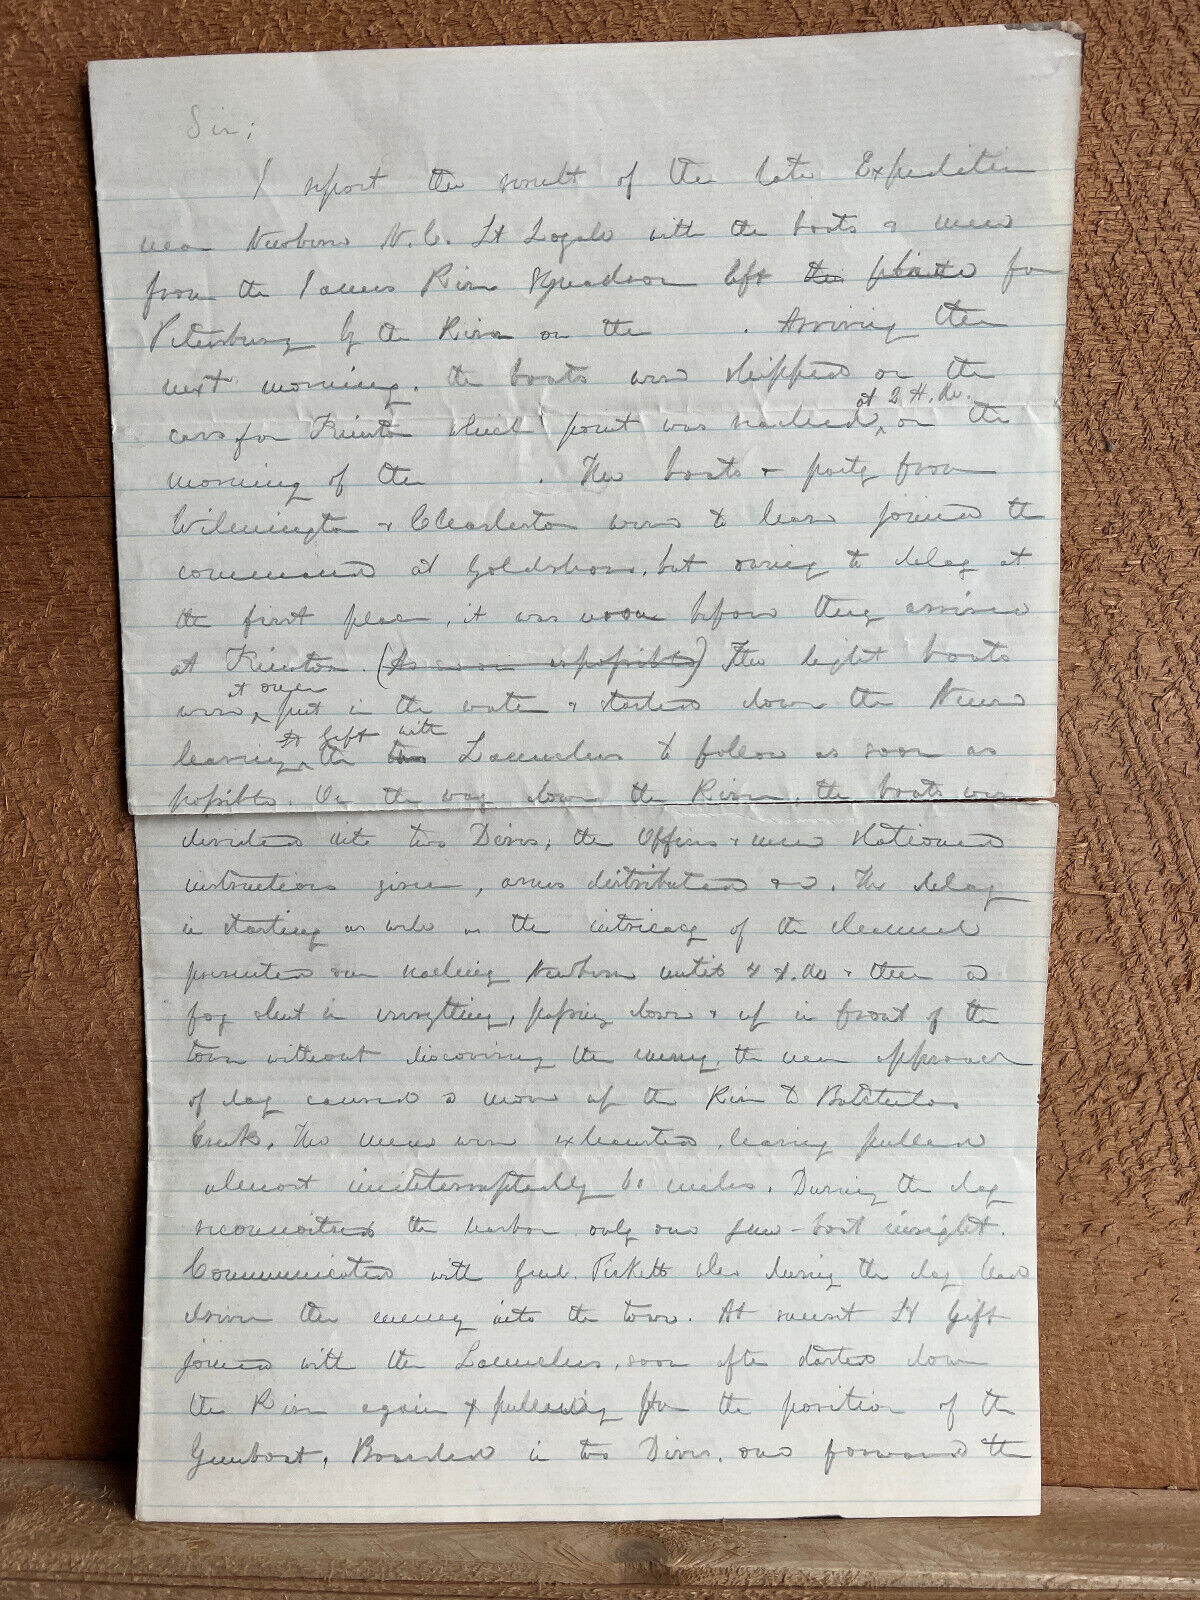 Sir;
I report the result of the late Expedition
near Newbern N.C. Lt Loyall with the boats & men
from the James River Squadron left the for
Petersburg by the River on the . Arriving the
next morning. the boats were shipped on the
cars for Kinston which point was reached at 2 A.M. on the
morning of the . The boats & party from
Wilmington & Charleston were to have joined the
command at Goldsboro, but owing to delay at
the first place, it was noon before they arrived
at Kinston. (As soon as possible) The light boats
were at once put in the water & started down the Neuse
leaving Lt Gift with the two Launches to follow as soon as
possible. On the way down the River, the boats were
divided into two Divs, the Officers & men stationed
instructions given, arms distributed &c. The delay
in starting as well as the intricacy of the channel
prevented our reaching Newbern until 4 A.M. & then a
fog shut in everything, passing down & up in front of the
town without discovering the enemy, the near approach
of day caused a move up the River to Batchelors
Creek. The men were exhausted, having pulled
almost uninterruptedly 60 miles. During the day
reconnoitred the harbor only one gun-boat in sight.
Communicated with Genl. Pickett who during the day had
driven the enemy into the town. At sunset Lt Gift
joined with the Launches, soon after started down
the River again & pulling for the position of the
Gunboat, Boarded in two Divs. one forward the